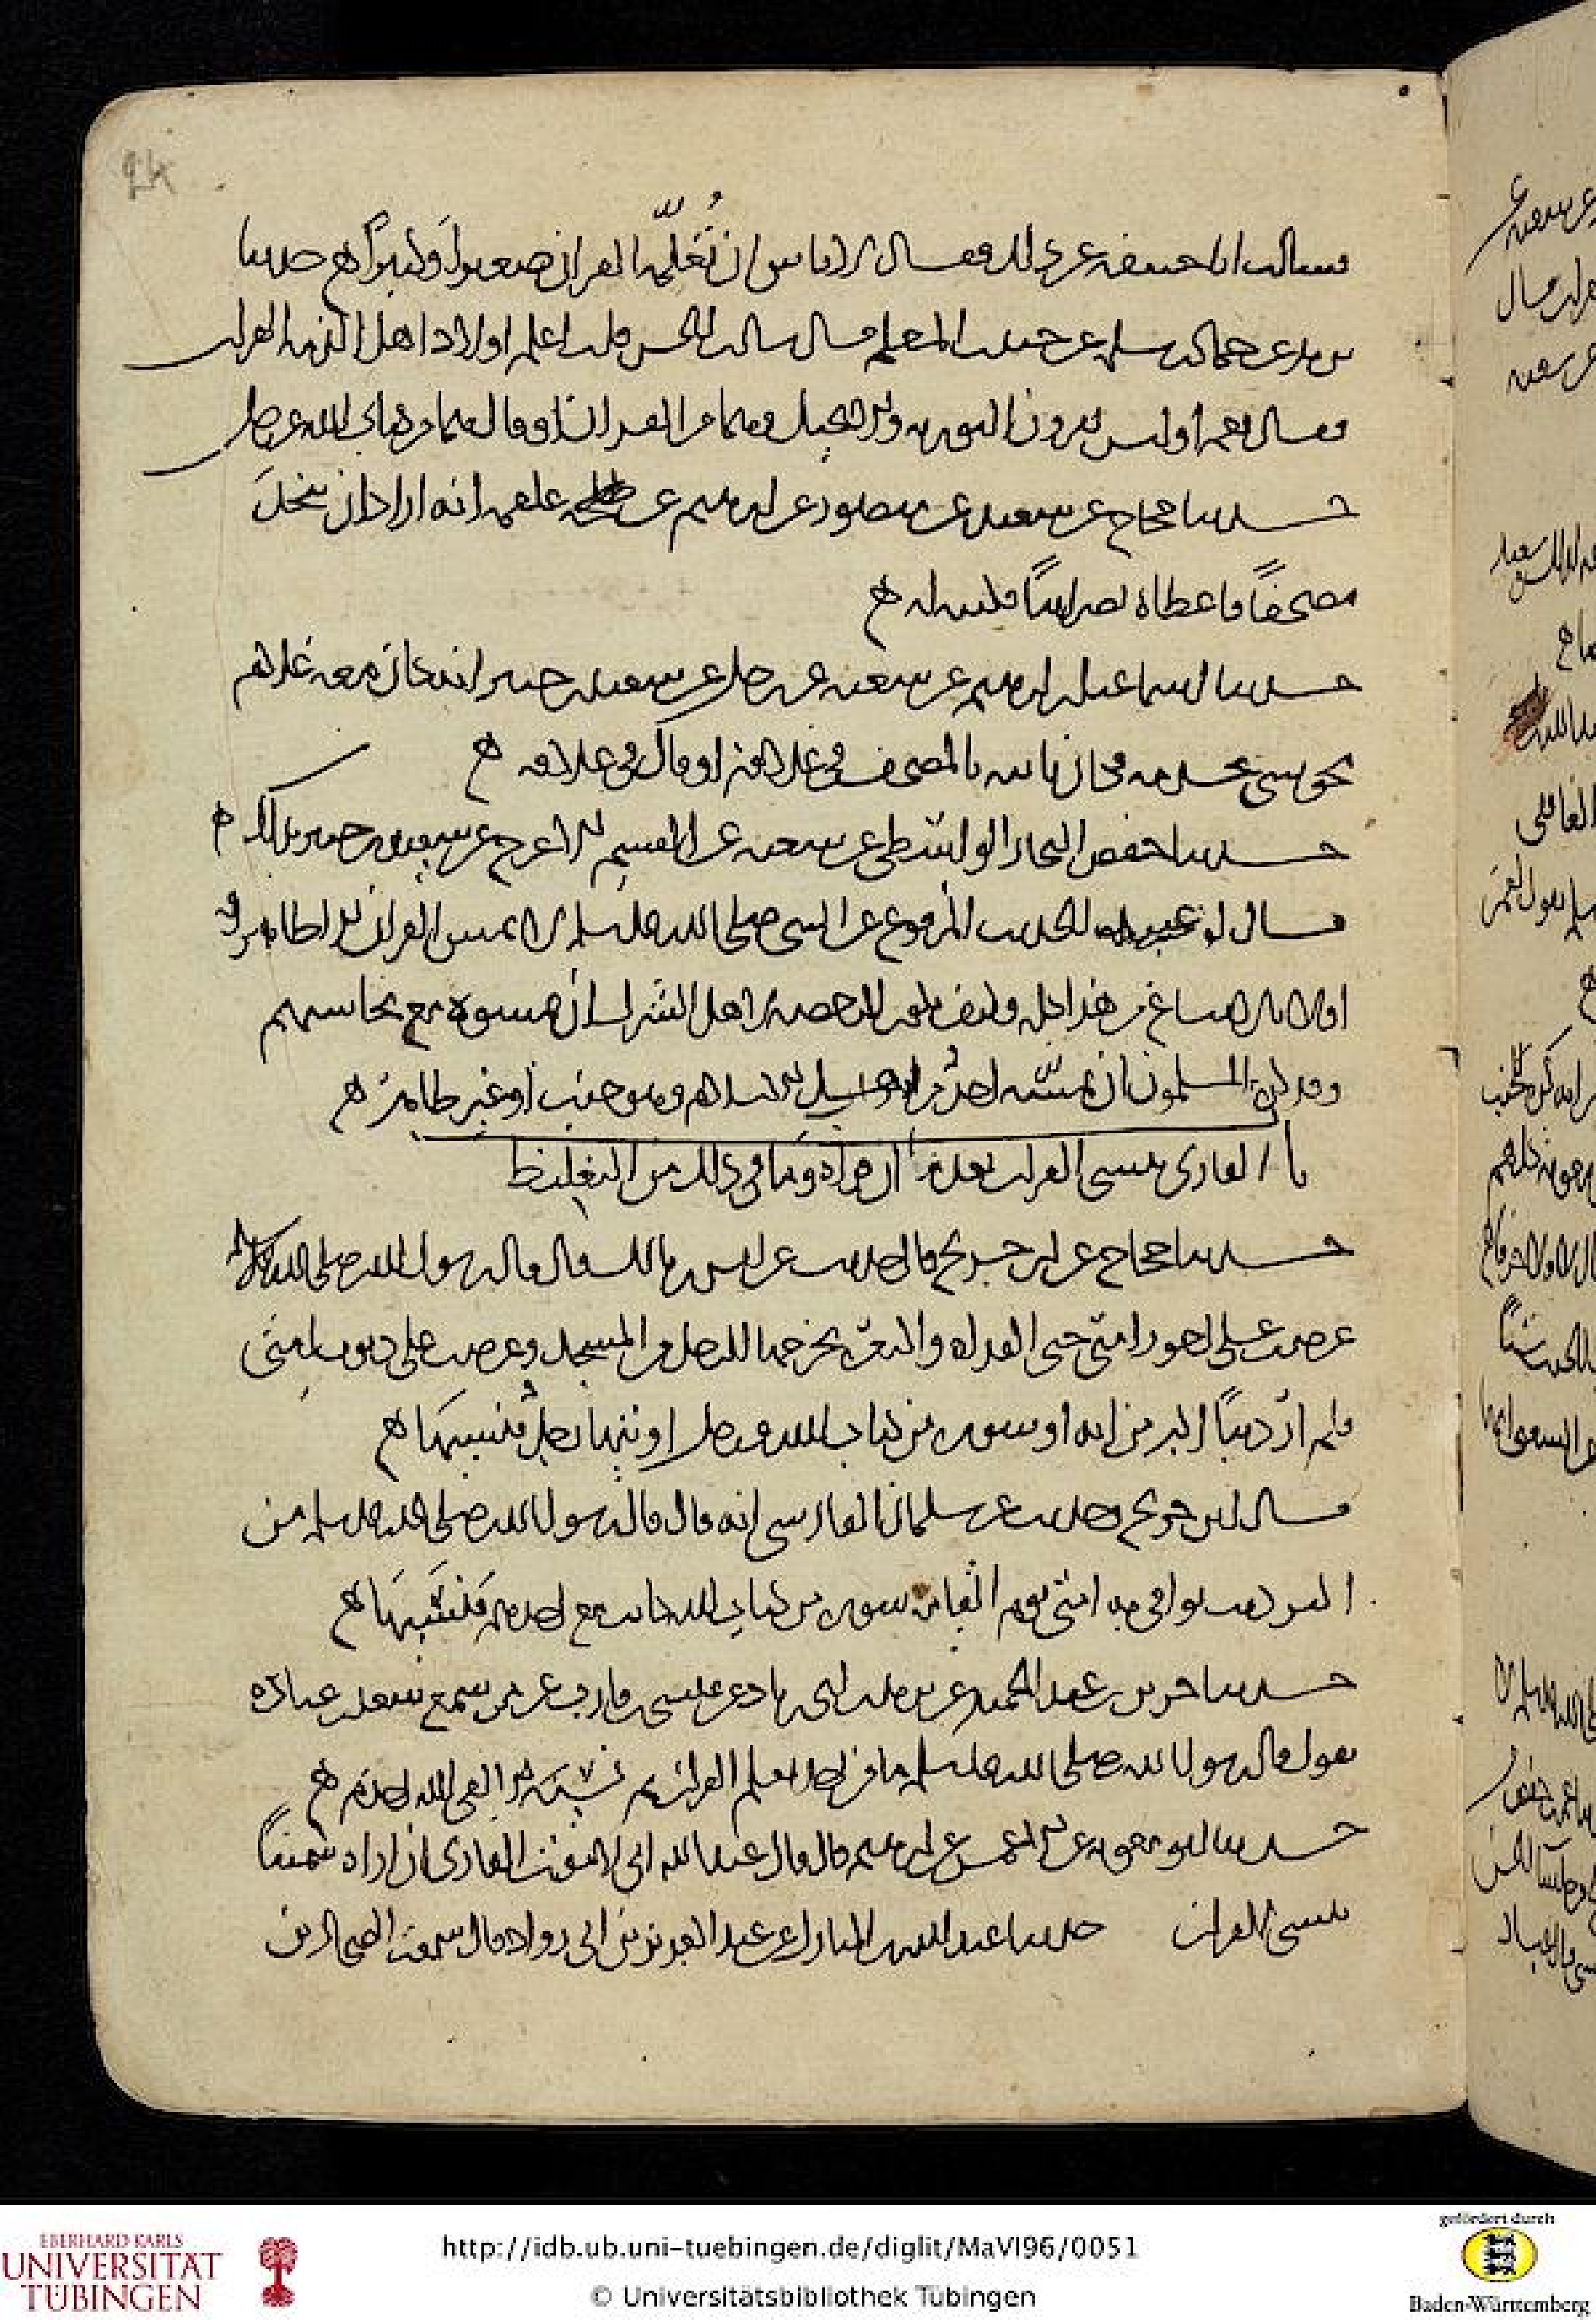 24
فسالت ابا حنيفه عن ذلك فقال لا باس ان تُعَلِّمَه القران صغيرا وَكبيراً ه حدثنا
يزيد عن حماد بن سلمه عن حبيب المعلم قال سالت الحسن قلت اعلم اولاد اهل الذمه القران
فقال نعم او ليس يقرون التوريه والانجيل وهما من القران او قال هما من كتاب الله عز وجل
حدثنا حجاج عن شعبه عن منصور عن ابرهيم عن علقمه انه اراد ان يتخذَ
مصحفاً فاعطاه نصرانياً فكتبه له ه
حدثنا اسماعيل بن ابرهيم عن شعبه عن رجل عن سعيد بن جبير انه كان معه غلام
مجوسي يخدمه فكان ياتيه بالمصحف في علاقته او قال في غلافه ه
حدثنا حفص النجار الواسطي عن شعبه عن القسم الاعرج عن سعيد بن جبير بذلك ه
قال ابو عبيد الحديث المرفوع عن النبي صلى الله عليه وسلم لا يمس القران الا طاهر
اولى بالاتباع من هذا كله وكيف تكون الرخصه لاهل الشرك ان يمسوه مع نجاستهم
وقد كره المسلمون ان يمسّه احدٌ من اهل الاسلام وهو جنب او غير طاهر ه
باب القارئ ينسى القران بعد ان قراه وما في ذلك من التغليظ
حدثنا حجاج عن ابن جريج قال حدثت عن انس بن مالك قال قال رسول الله صلى الله عليه
عرضت علي اجور امتي حتى القذاه والبعره يخرجها الرجل من المسجد وعرضت علي ذنوب امتي
فلم ار ذنبًا اكبر من ايه او سوره من كتاب الله عز وجل اوتيها رجلٌ فنسيها ه
قال ابن جريج وحدثت عن سلمان الفارسي انه قال قال رسول الله صلى الله عليه وسلم من
اكبر ذنب توافي به امتي يوم القيامه سوره من كتاب الله كانت مع احدهم فنسيها ه
حدثنا جرير بن عبد الحميد عن يزيد بن ابي زياد عن عيسى بن فايد عن من سمع سعد بن عباده
يقول قال رسول الله صلى الله عليه وسلم ما من احد تعلم القران ثم نسيه الا لقي الله اجذم ه
حدثنا ابو معويه عن الاعمش عن ابرهيم قال قال عبد الله اني لامقت القارئ ان اراه سمينًا
ينسى القران حدثنا عبد الله بن المبارك عن عبد العزيز بن ابي رواد قال سمعت الضحاك بن
EBERHARD KARLS
UNIVERSITÄT
TÜBINGEN
http://idb.ub.uni-tuebingen.de/diglit/MaVI96/0051
© Universitätsbibliothek Tübingen
gefördert durch
Baden-Württemberg